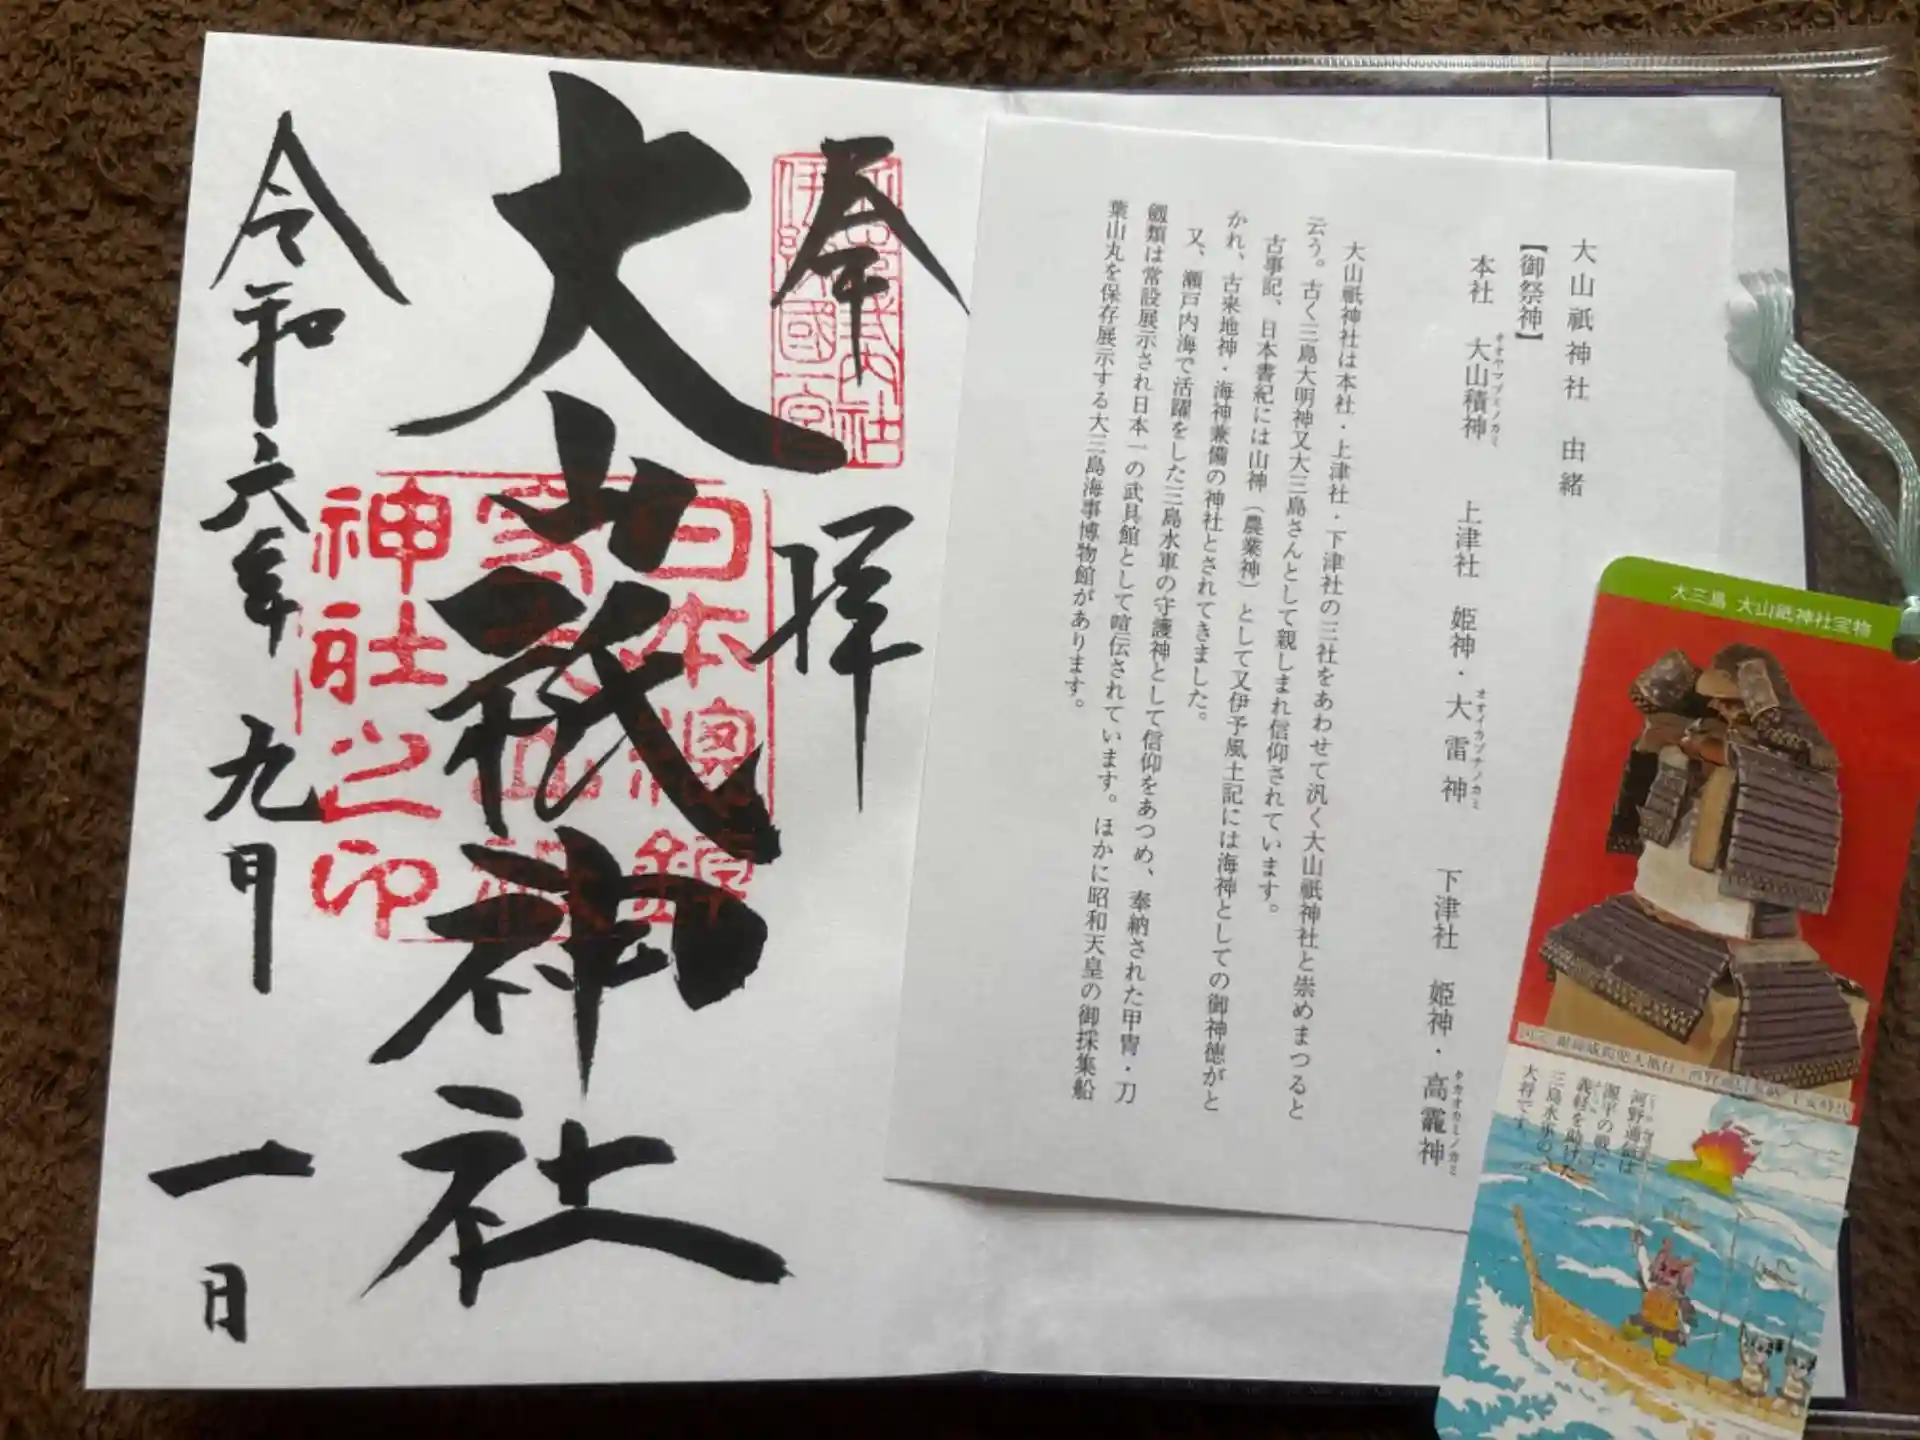 奉拝
大山祇神社
令和六年九月一日
日本總鎮
神社之印
大山祇神社 由緒
【御祭神】
本社 大山積神 上津社 姫神・大雷神 下津社 姫神・高龗神
オオヤマヅミノカミ
オオイカヅチノカミ
タカオカミノカミ
大山祇神社は本社・上津社・下津社の三社をあわせて汎く大山祇神社と崇めまつると
云う。古く三島大明神又大三島さんとして親しまれ信仰されています。
古事記、日本書紀には山神（農業神）として又伊予風土記には海神としての御神徳がと
かれ、古来地神・海神兼備の神社とされてきました。
又、瀬戸内海で活躍をした三島水軍の守護神として信仰をあつめ、奉納された甲冑・刀
剱類は常設展示され日本一の武具館として喧伝されています。ほかに昭和天皇の御採集船
葉山丸を保存展示する大三島海事博物館があります。
大三島 大山祇神社宝物
河野通信は
源平の戦に
義経を助けた
三島水軍の
大将です。